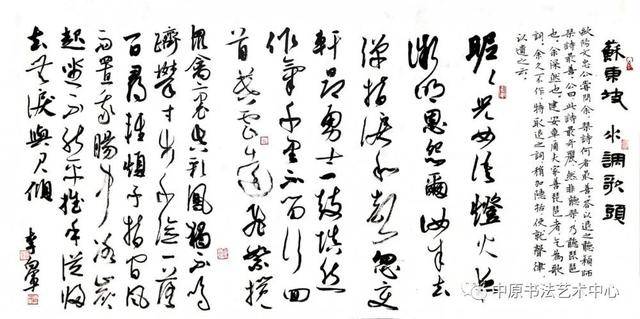 蘇東坡 水調歌頭
歐陽文忠公嘗問余琴詩何者最善答以退之聽穎師
琴詩最善公曰此詩最奇麗然非聽琴乃聽琵琶
也余深然之建安章質夫家善琵琶者乞為歌
詞余久不作特取退之詞稍加隱括使就聲律
以遺之云
昵昵兒女語燈火夜
微明恩怨爾汝來去
彈指淚和聲忽變
軒昂勇士一鼓填然
作氣千里不留行回
首暮雲遠飛絮攪
眾禽裏真彩鳳獨不鳴
躋攀寸步千險一落
百尋輕煩子指間風
雨置我腸中冰炭
起坐不能平推手從歸
去無淚與君傾
中原书法艺术中心